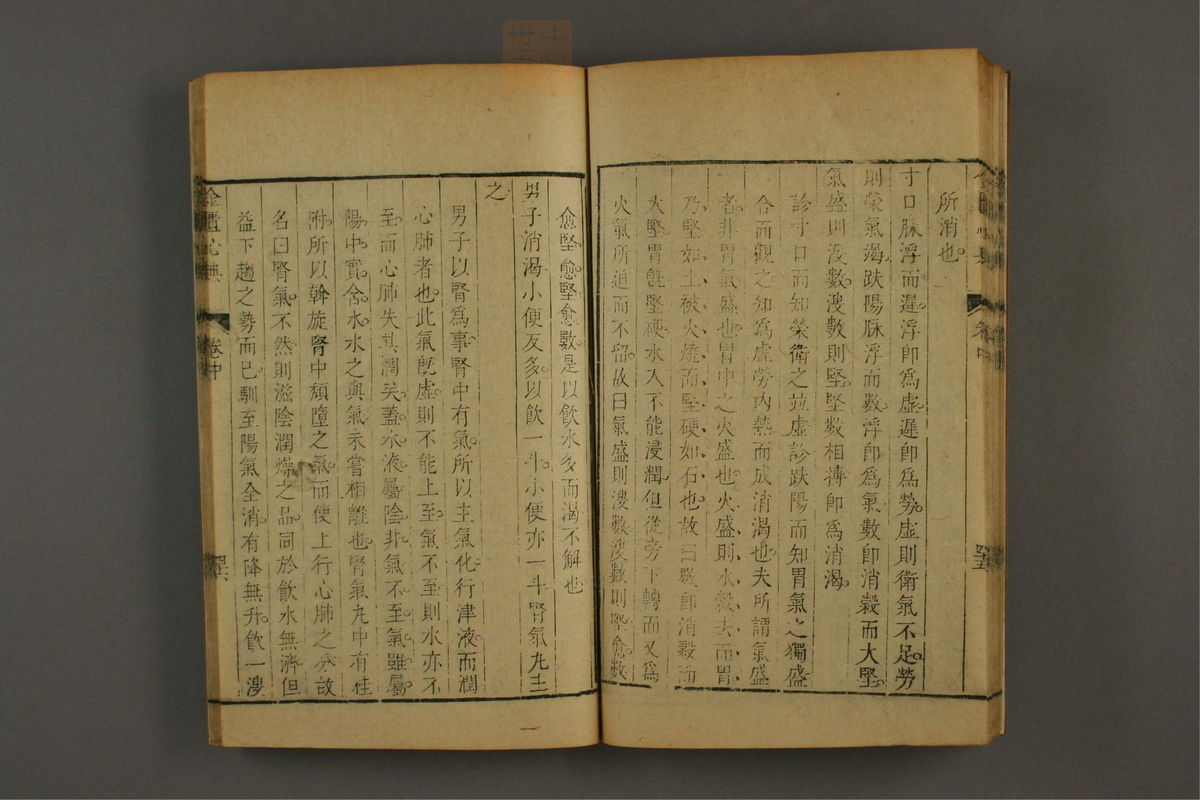 所消也
寸口脉浮而遲浮卽爲虛遲卽爲勞虛則衛氣不足勞
則榮氣竭趺陽脉浮而數浮卽爲氣數卽消穀而大堅
氣盛則溲數溲數則堅堅數相搏卽爲消渴
診寸口而知榮衛之竝虛診趺陽而知胃氣之獨盛
合而觀之知爲虛勞內熱而成消渴也夫所謂氣盛
者非胃氣盛也胃中之火盛也火盛則水穀去而胃
乃堅如土被火燒而堅硬如石也故曰數卽消穀而
大堅胃旣堅硬水入不能浸潤但從旁下轉而又爲
火氣所迫而不留故曰氣盛則溲數溲數則堅愈數
愈堅愈堅愈數是以飮水多而渴不解也
男子消渴小便反多以飮一斗小便亦一斗腎氣丸主
之
男子以腎爲事腎中有氣所以主氣化行津液而潤
心肺者也此氣旣虛則不能上至氣不至則水亦不
至而心肺失其潤矣蓋水液屬陰非氣不至氣雖屬
陽中實含水水之與氣未嘗相離也腎氣丸中有桂
附所以斡旋腎中頹墮之氣而使上行心肺之分故
名曰腎氣不然則滋陰潤燥之品同於飮水無濟但
益下趨之勢而已馴至陽氣全消有降無升飮一溲
金匱心典
卷中